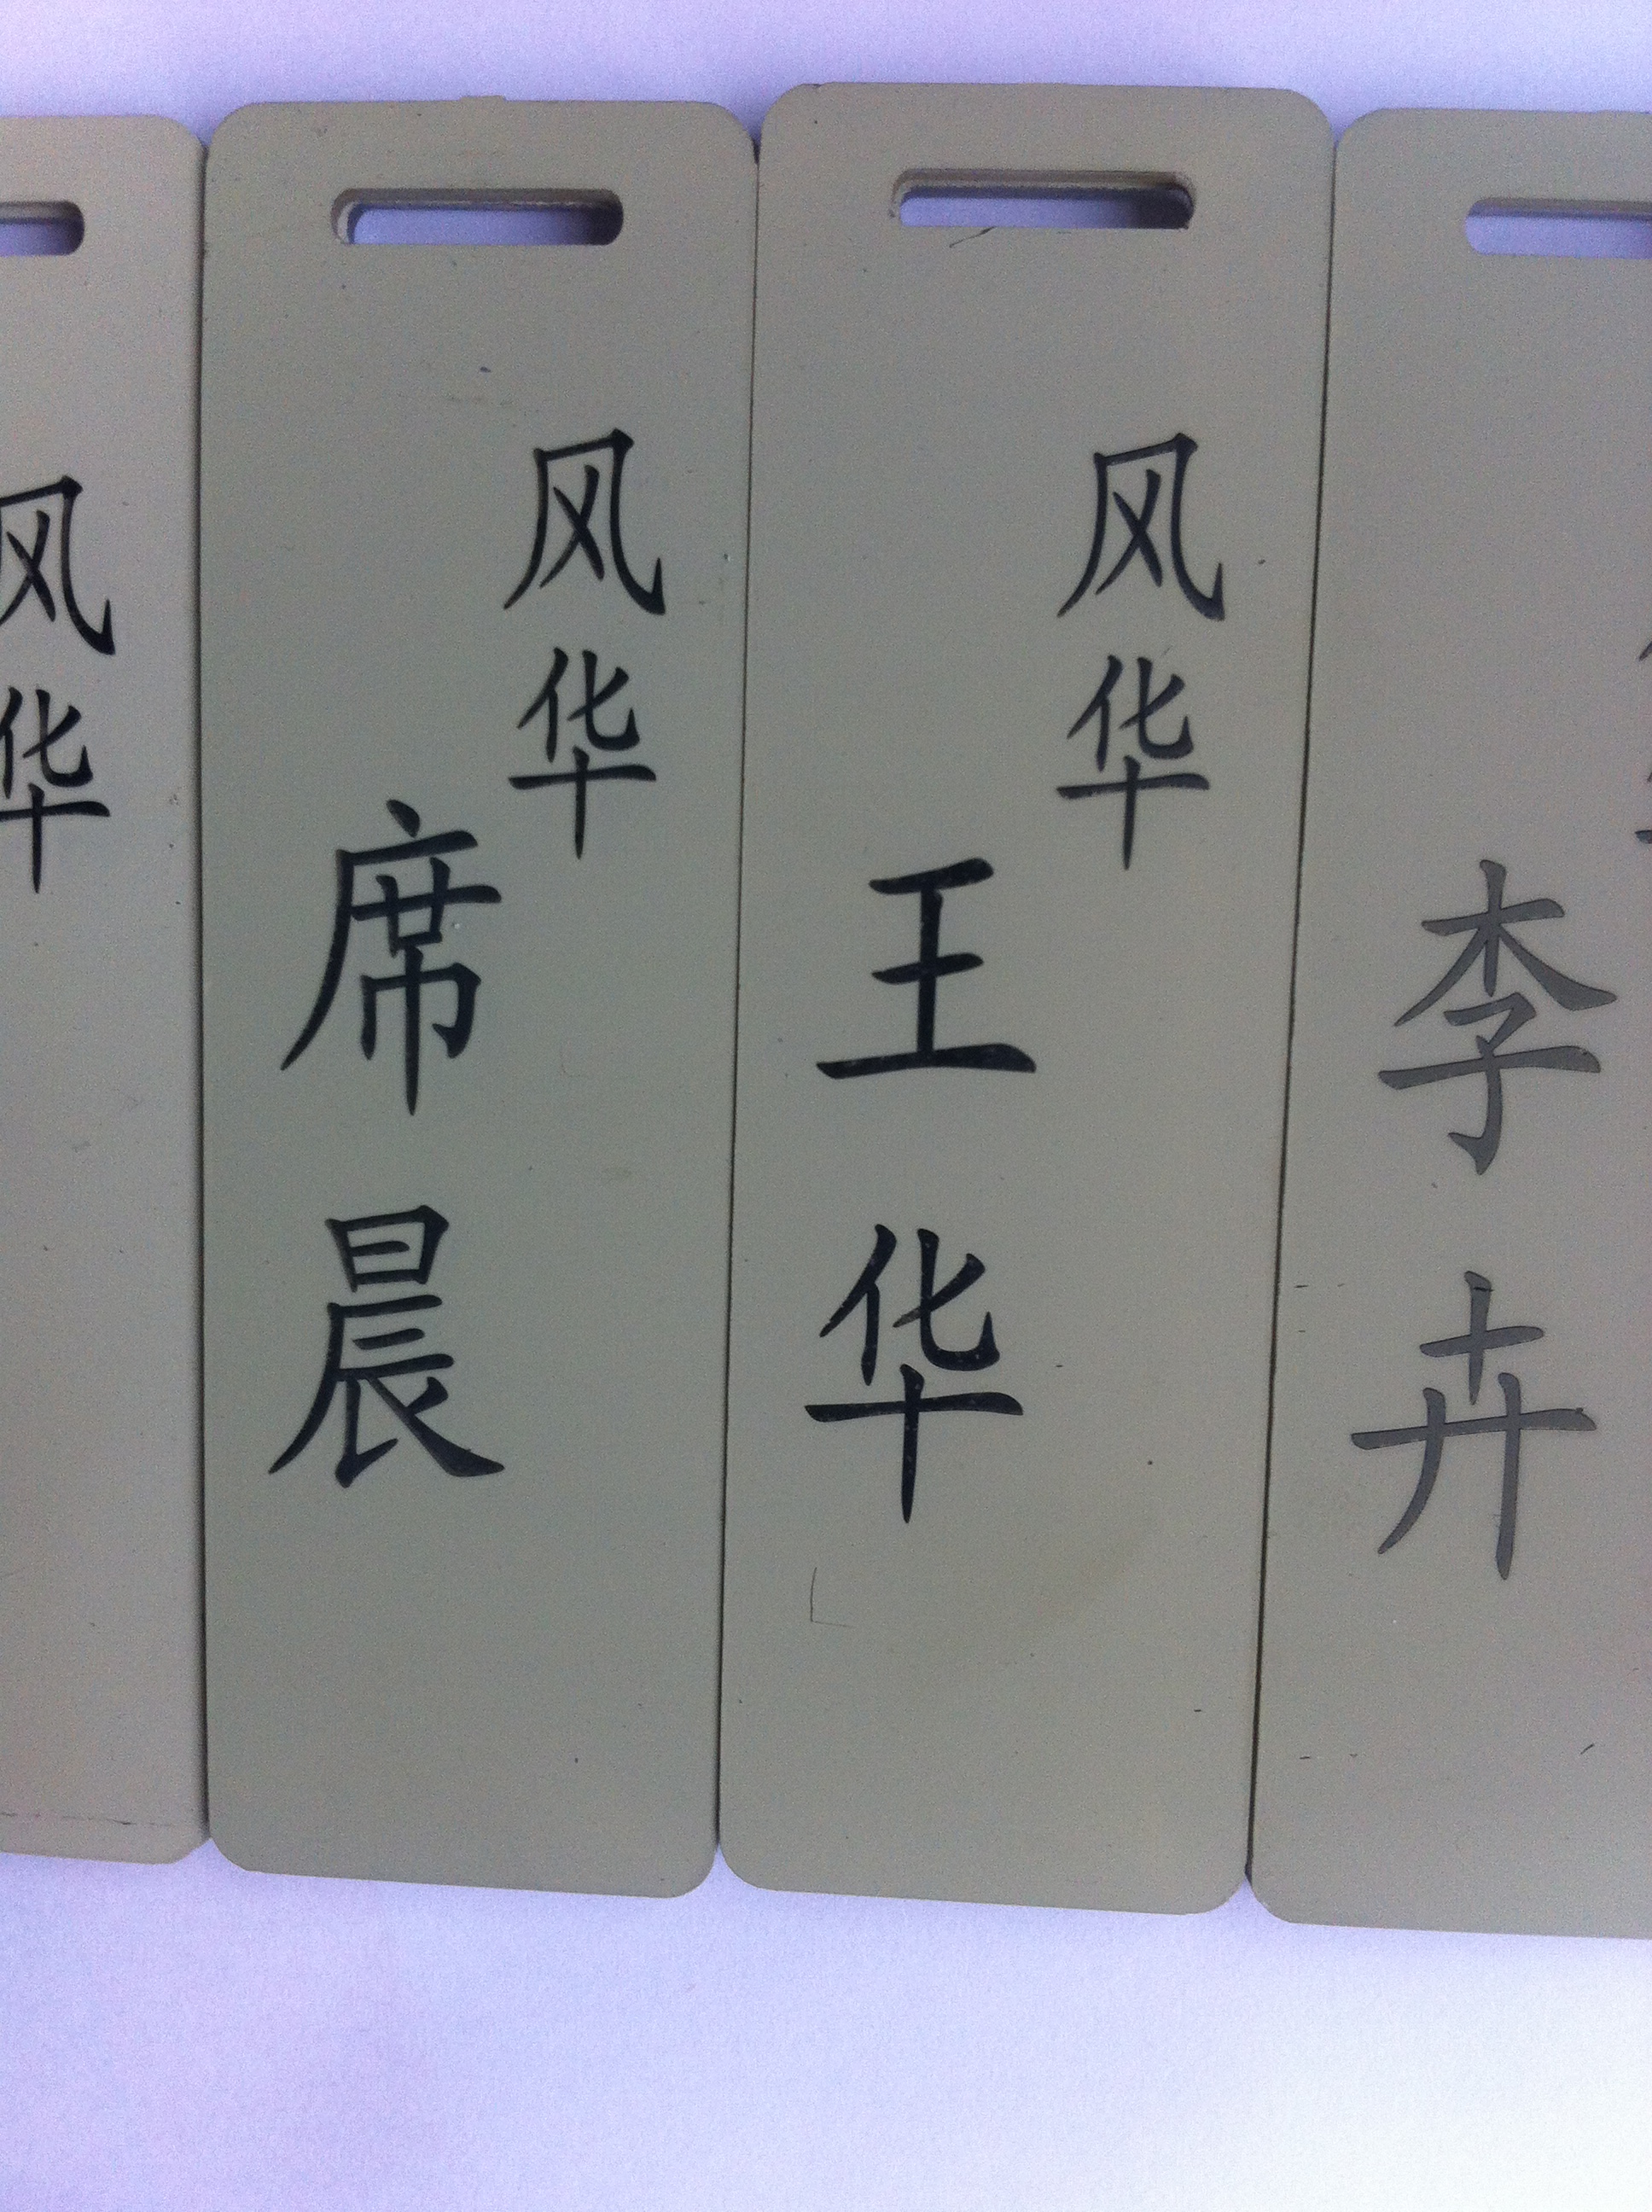 风华
风华
席晨
风华
王华
李卉